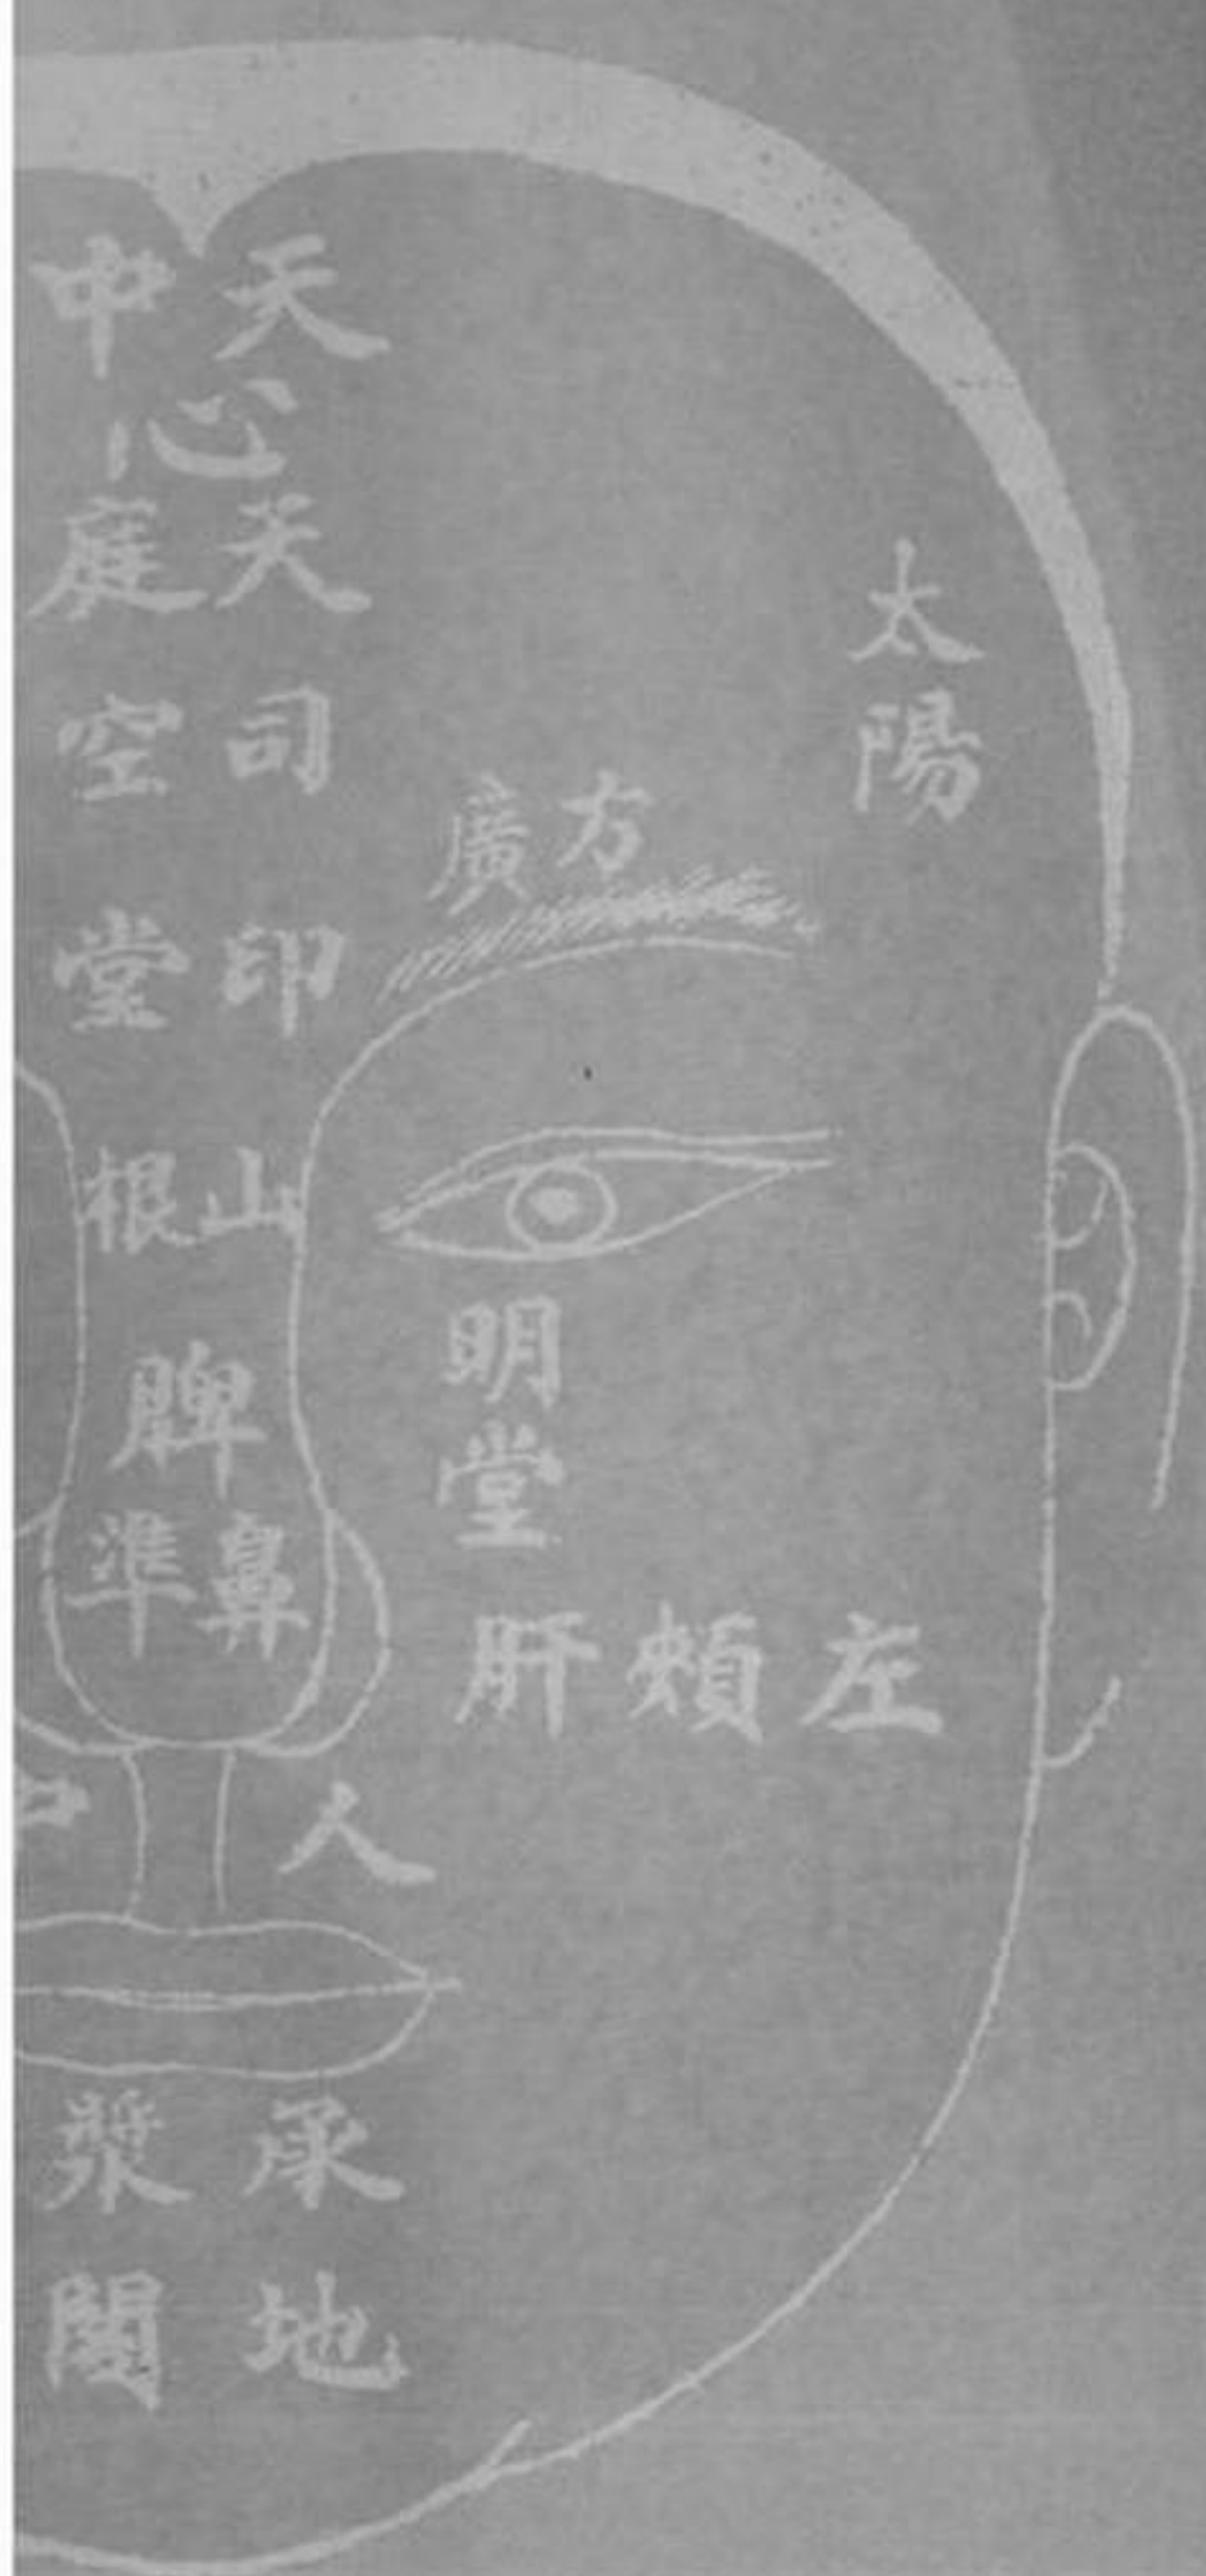 天中
天心
天庭
司空
印堂
山根
脾
鼻準
人中
承漿
地閣
太陽
方廣
明堂
左頰肝